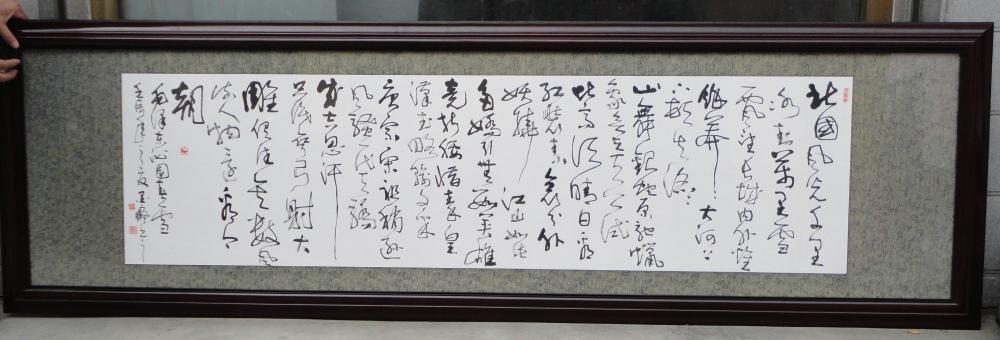 北國風光千里
冰封萬里雪
飄望長城内外惟
餘莽莽大河上
下頓失滔滔
山舞銀蛇原馳蠟
象欲與天公試
比高須晴日看
紅裝素裹分外
妖嬈江山如此
多嬌引無數英雄
竞折腰惜秦皇
漢武略輸文采
唐宗宋祖稍遜
風騷一代天驕
成吉思汗
只识弯弓射大
雕俱往矣数風
流人物还看今
朝
毛泽东沁园春雪